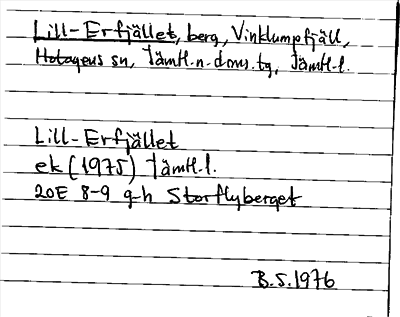 Lill-Erfjället, berg, Vinklumpfjäll,
Hotagens sn, Jämtl.n. doms.tg, Jämtl.l.
Lill-Erfjället
ek (1975) Jämtl.l.
20E 8-9 g-h Storflyberget
B.S. 1976